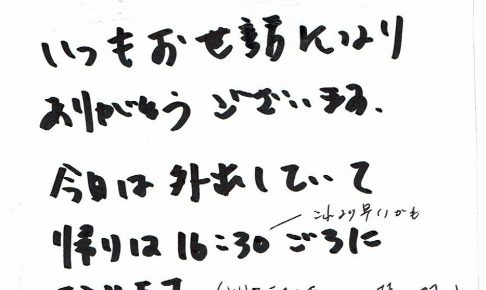 いつもお世話になり
ありがとうございます、
今日は外出していて
これより早いかも
帰りは16:30ごろに